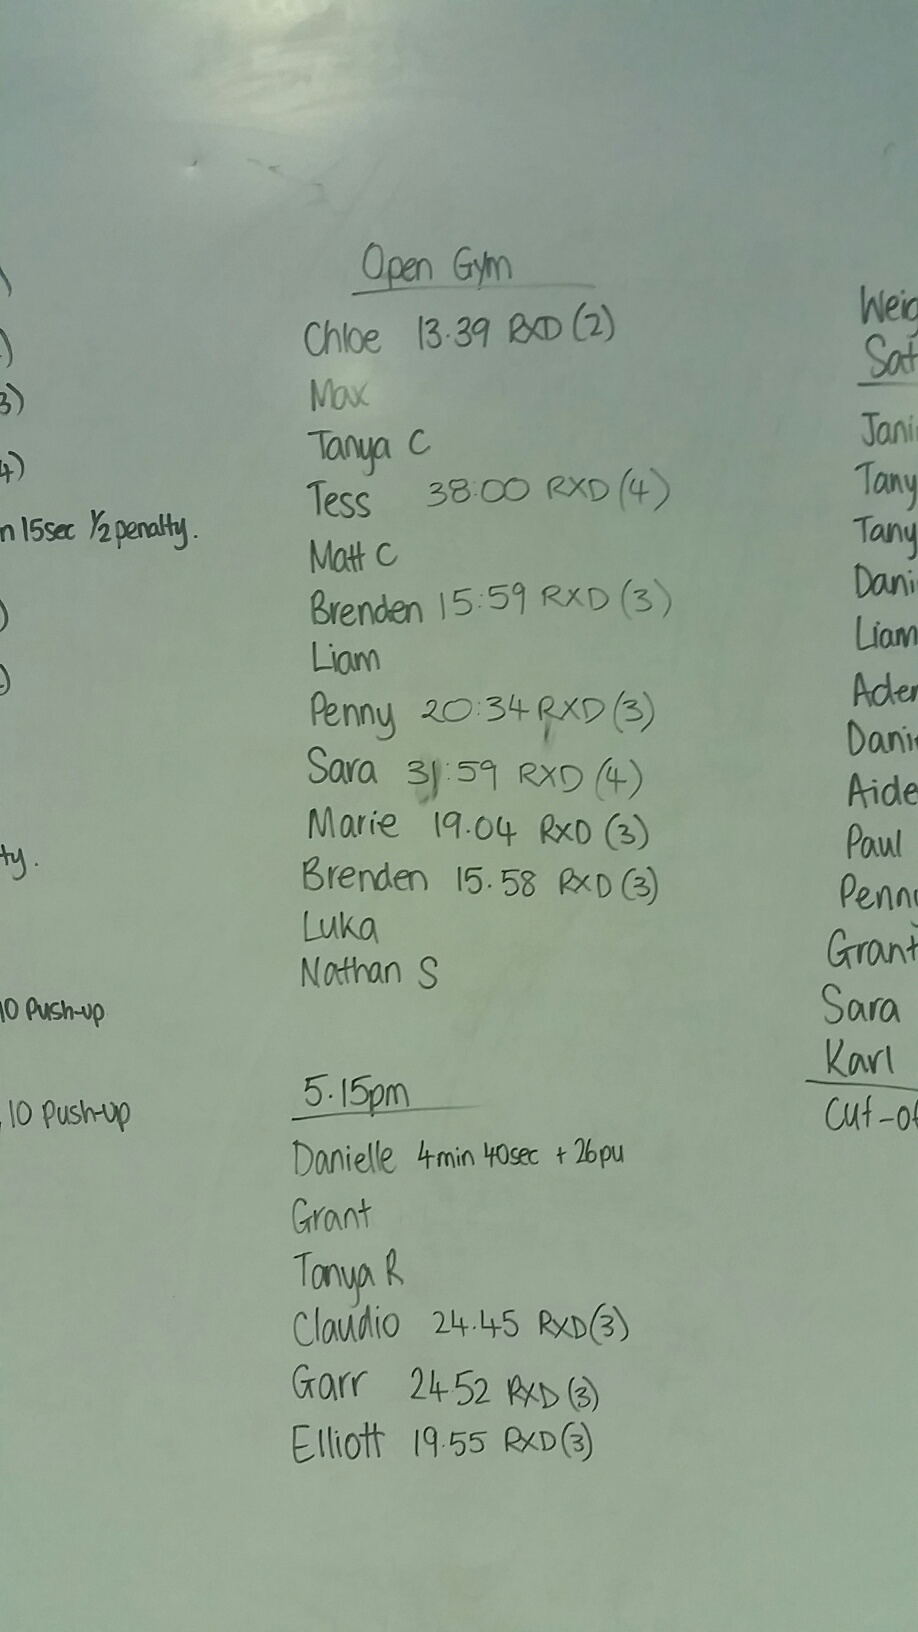 Open Gym
Chloe 13.39 RXD (2)
Max
Tanya C
Tess 38:00 RXD (4)
Matt C
Brenden 15:59 RXD (3)
Liam
Penny 20:34 RXD (3)
Sara 31:59 RXD (4)
Marie 19.04 RXD (3)
Brenden 15.58 RXD (3)
Luka
Nathan S
5.15pm
Danielle 4min 40sec + 26pu
Grant
Tanya R
Claudio 24.45 RXD (3)
Garr 24 52 RXD (3)
Elliott 19.55 RXD (3)
)
)
3)
4)
n 15sec 1/2 penalty.
)
)
ty.
10 Push-up
10 Push-up
Weig
Sat
Jani
Tany
Tany
Dani
Liam
Aden
Dani
Aide
Paul
Penn
Grant
Sara
Karl
Cut-of